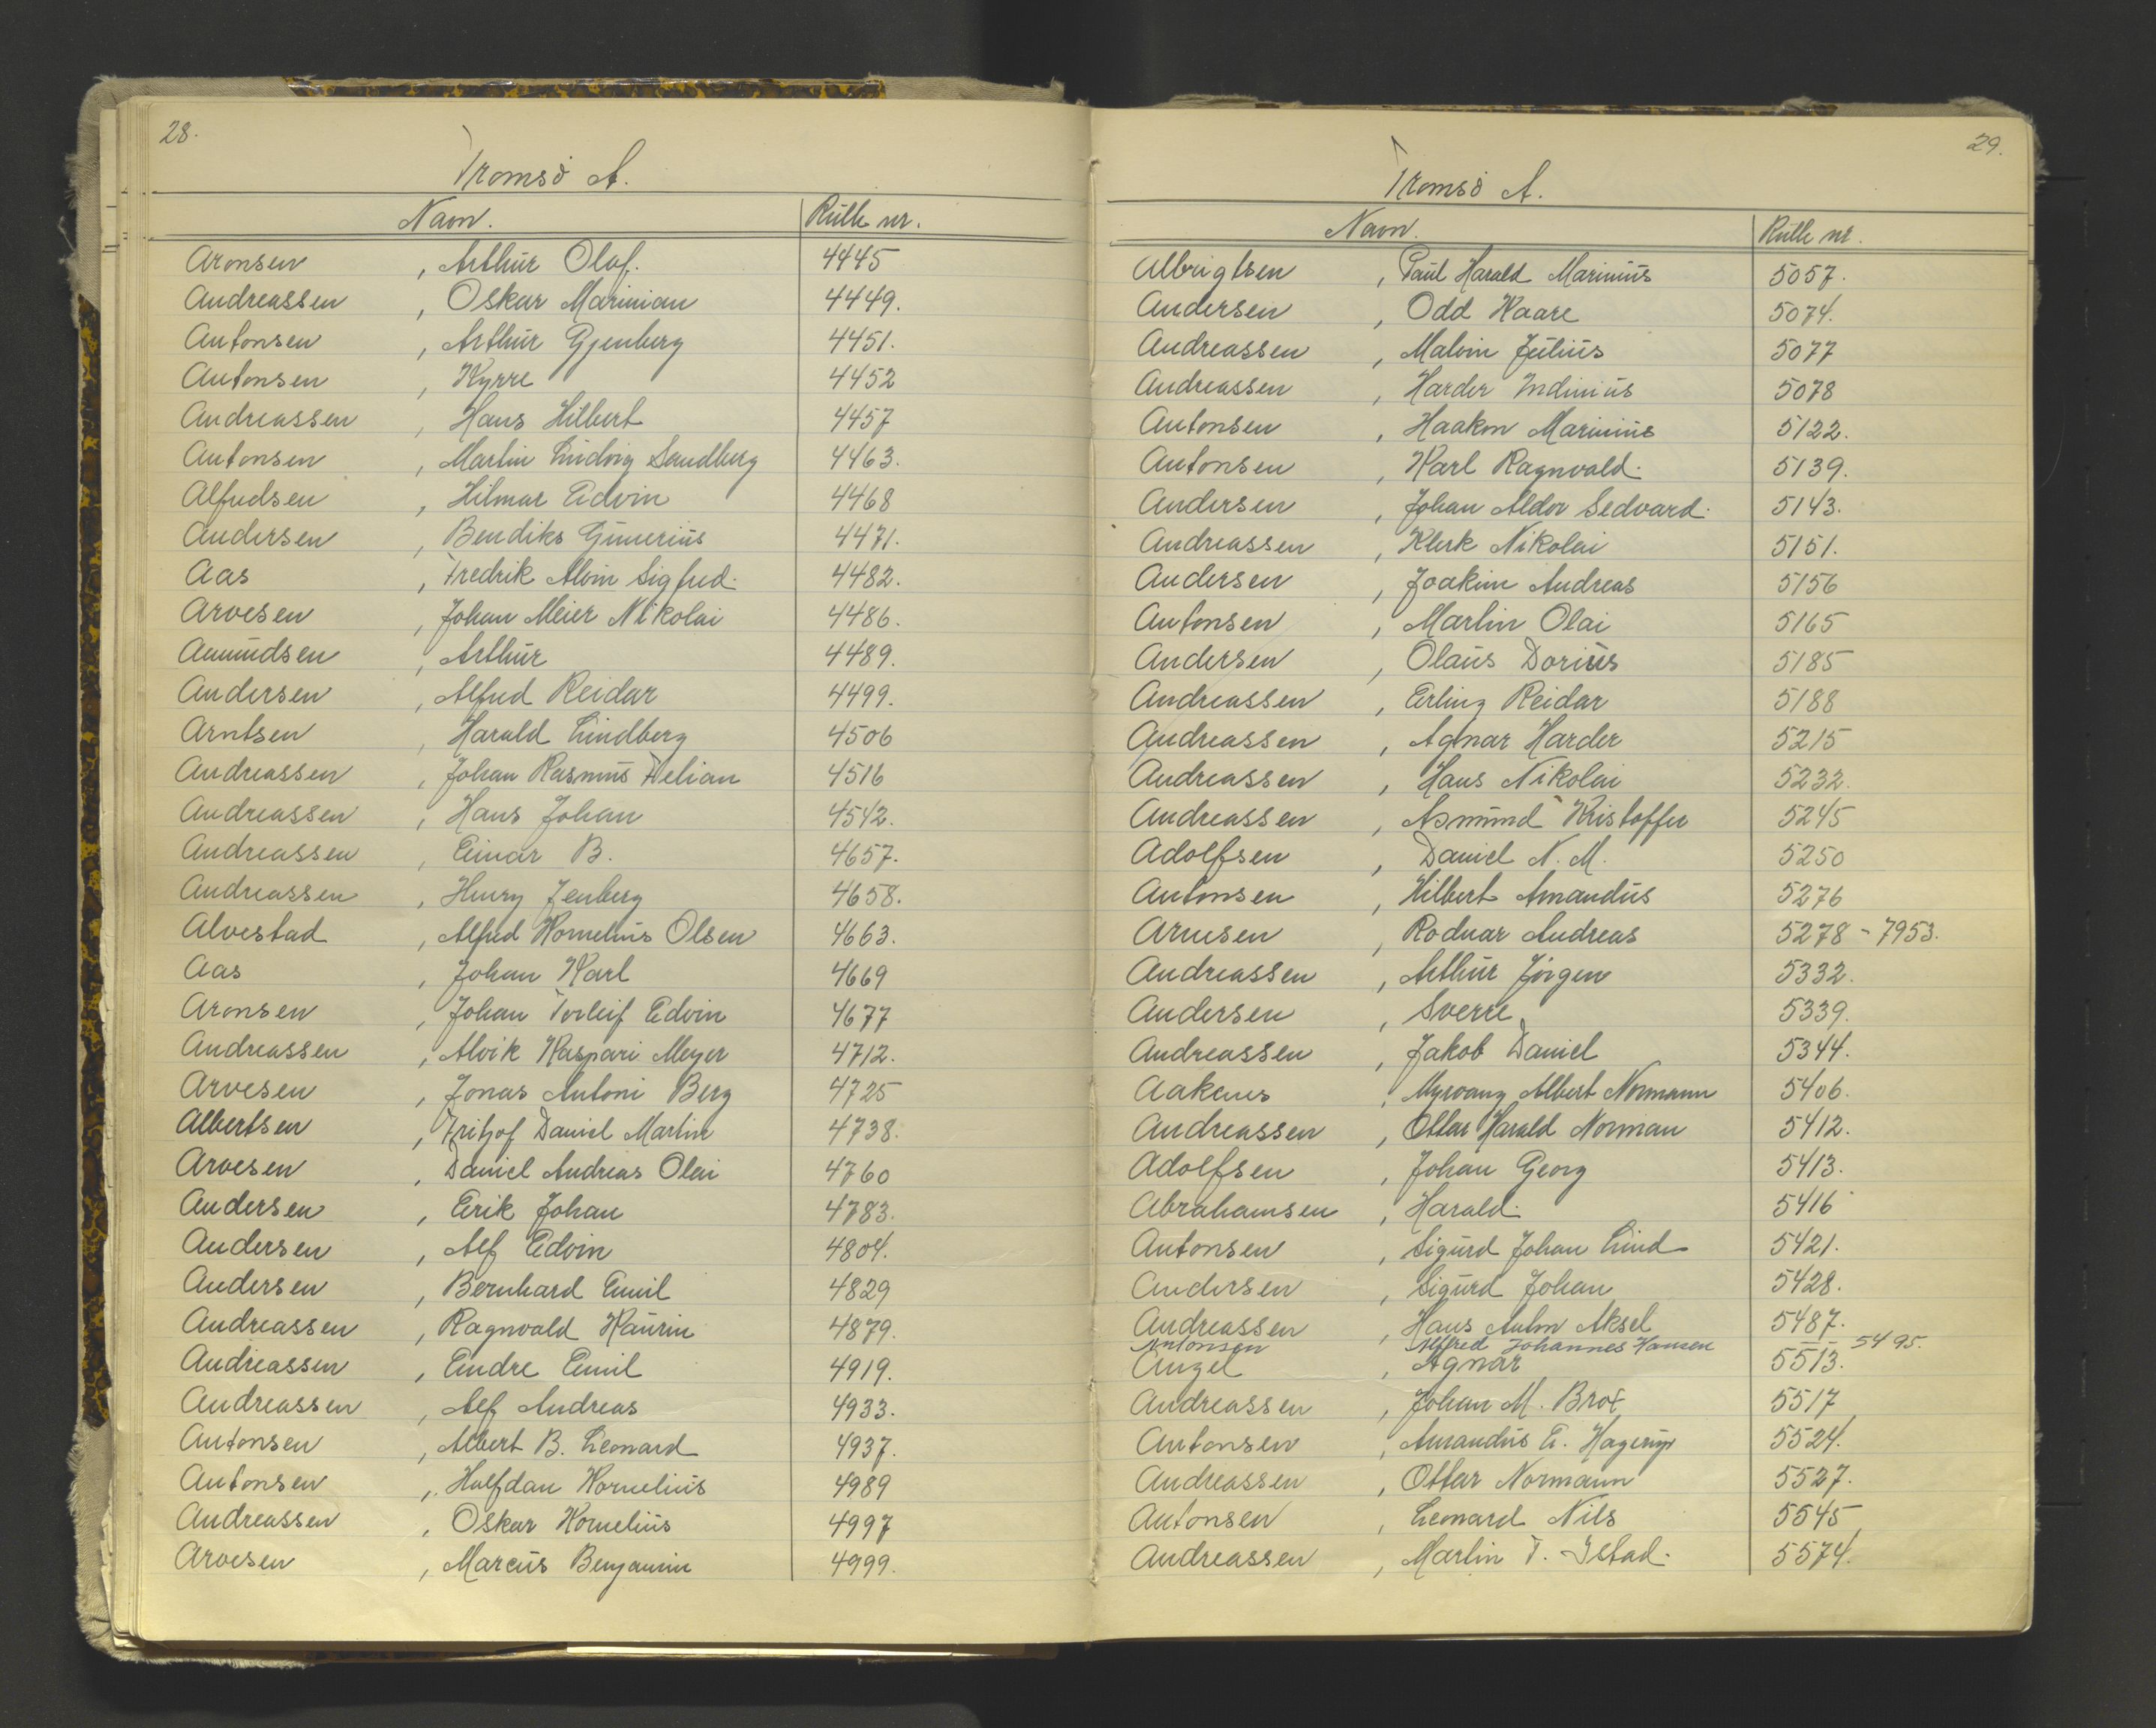 28.
Tromsö A.
Navn. Rulle nr.
Aronsen , Arthur Olaf. 4445
Andreassen , Oskar Marinian 4449.
Antonsen , Arthur Gjenberg 4451.
Antonsen , Kyrre 4452
Andreassen , Hans Hilbert 4457
Antonsen , Martin Ludvig Sandberg 4463.
Alfredsen , Hilmar Edvin 4468
Andersen , Bendiks Gunerius 4471.
Aas , Fredrik Alvin Sigfred. 4482.
Arvesen , Johan Meier Nikolai 4486.
Amundsen , Arthur 4489.
Andersen , Alfred Reidar 4499.
Arntsen , Harald Lindberg 4506
Andreassen , Johan Rasmus Felian 4516
Andreassen , Hans Johan 4542.
Andreassen , Einar B. 4657.
Andreassen , Henry Jenberg 4658.
Alvestad , Alfred Kornelius Olsen 4663.
Aas , Johan Karl 4669
Aronsen , Johan Torleif Edvin 4677
Andreassen , Alvik Kaspari Meyer 4712.
Arvesen , Jonas Antoni Berg 4725
Albertsen , Fritjof Daniel Martin 4738.
Arvesen , Daniel Andreas Olai 4760
Andersen , Erik Johan 4783.
Andersen , Alf Edvin 4804.
Andersen , Bernhard Emil 4829
Andreassen , Ragnvald Kaurin 4879.
Andreassen , Endre Emil 4919.
Andreassen , Alf Andreas 4933.
Antonsen , Albert B. Leonard 4937.
Antonsen , Halfdan Kornelius 4989
Andreassen , Oskar Kornelius 4997
Arvesen , Marcus Benjamin 4999.
29.
Tromsö A.
Navn. Rulle nr.
Albrigtsen , Paul Harald Marinius 5057.
Andersen , Odd Kaare 5074.
Andreassen , Malvin Julius 5077
Andreassen , Harder Indinius 5078
Antonsen , Haakon Marinius 5122.
Antonsen , Karl Ragnvald. 5139.
Andersen , Johan Aldor Sedvard. 5143.
Andreassen , Klerk Nikolai 5151.
Andersen , Joakim Andreas 5156
Antonsen , Martin Olai 5165
Andersen , Olaus Dorius 5185
Andreassen , Erling Reidar 5188
Andreassen , Agnar Harder 5215
Andreassen , Hans Nikolai 5232.
Andreassen , Asmund Kristoffer 5245
Adolfsen , Daniel N. M. 5250
Antonsen , Hilbert Amandus 5276
Arnesen , Rodnar Andreas 5278 - 7953.
Andreassen , Arthur Jörgen 5332.
Andersen , Sverre 5339.
Andreassen , Jakob Daniel 5344.
Aakenes , Myrvang Albert Normann 5406.
Andreassen , Ottar Harald Norman 5412.
Adolfsen , Johan Georg 5413.
Abrahamsen , Harald. 5416
Antonsen , Sigurd Johan Lind 5421.
Andersen , Sigurd Johan 5428.
Andreassen , Hans Anton Aksel 5487.
Antonsen Alfred Johannes Hansen 5495.
Angel , Agnar 5513.
Andreassen , Johan M. Brox 5517
Antonsen , Amandus E. Hagerup 5524.
Andreassen , Ottar Normann 5527.
Antonsen , Leonard Nils 5545
Andreassen , Martin T. Istad. 5574.